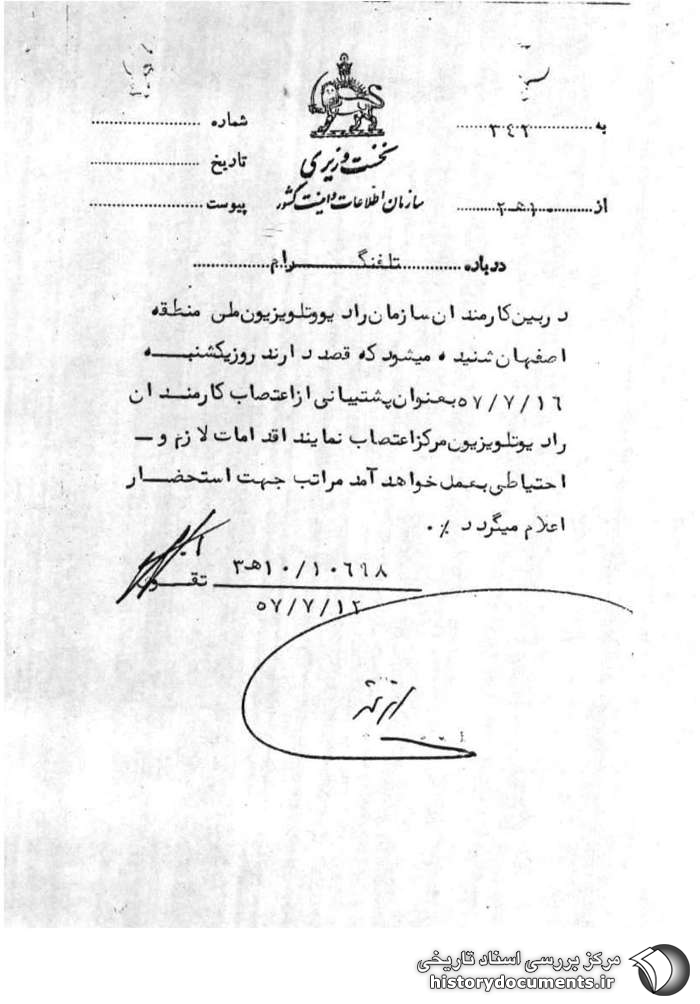 به ۳۴۲
شماره
نخست وزیری
تاریخ
سازمان اطلاعات و امنیت کشور
از ۱۰هـ۲
پیوست
درباره تلفنگرام
در بین کارمندان سازمان رادیو و تلویزیون ملی منطقه
اصفهان شنیده میشود که قصد دارند روز یکشنبه
۵۷/۷/۱۶ بعنوان پشتیبانی از اعتصاب کارمندان
رادیو تلویزیون مرکز اعتصاب نمایند اقدامات لازم و ـ
احتیاطی بعمل خواهد آمد مراتب جهت استحضار
اعلام میگردد ٪.
۱۰/۱۰۶۹۸هـ۳
۵۷/۷/۱۲
مرکز بررسی اسناد تاریخی
historydocuments.ir